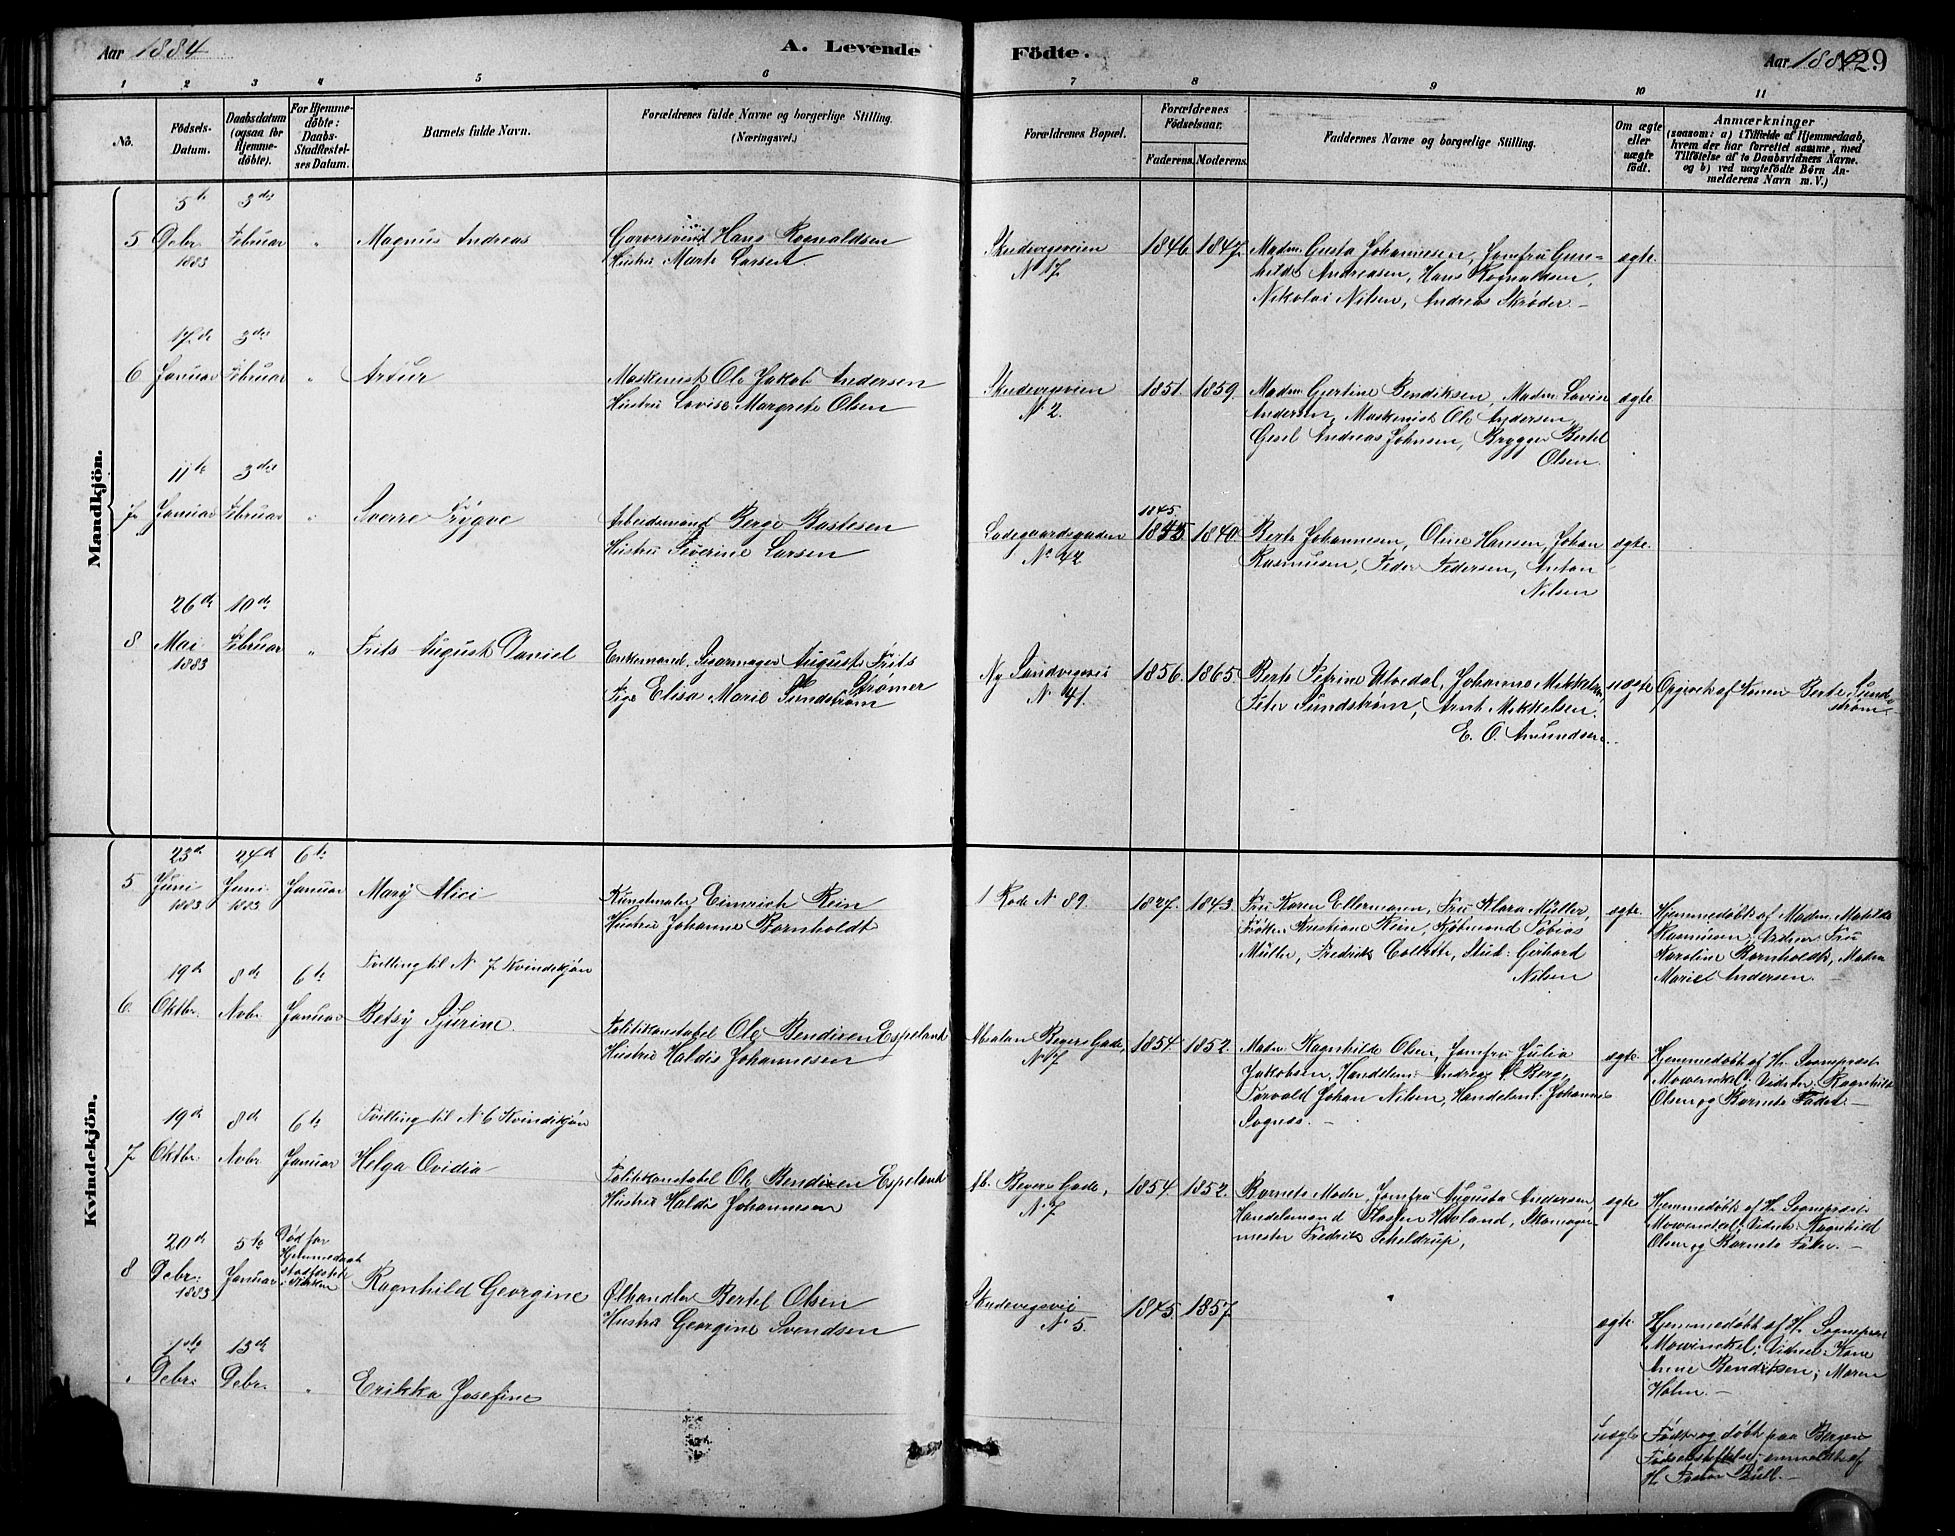 Aar 1884
A. Levende
Födte.
Aar 1884
129
1 2 3 4 5 6 7 8 9 10 11
No.
Födsels-
Datum.
Daabsdatum
(ogsaa for
Hjemme-
döbte).
For Hjemme-
döbte:
Daabs-
Stadfæstel-
ses Datum.
Barnets fulde Navn.
Forældrenes fulde Navne og borgerlige Stilling.
(Næringsvei.)
Forældrenes Bopæl.
Forældrenes
Födselsaar.
Faderens. Moderens.
Faddernes Navne og borgerlige Stilling.
Om ægte
eller
uægte
født.
Anmærkninger
(saasom: a) i Tilfælde af Hjemmedaab,
hvem der har forrettet samme, med
Tilföielse af to Daabsvidners Navne.
og b) ved uægtefödte Börn An-
melderens Navn m. V.)
Mandkjön.
5te 3die
5 Debr. Februar " Magnus Andreas
1883
Garversvend Hans Rognaldsen
Hustru Marte Larsen
Skudevigsveien
No 17
1846. 1847.
Madm. Gusta Johannesen, Jomfru Gun-
hilda Andreasen, Hans Rognaldsen,
Nikolai Nilsen, Andreas Skrøder.-
ægte.
17de 3die
6 Januar Februar " Artur
Maskinist Ole Jakob Andersen
Hustru Lovise Margrete Olsen
Skudevigsveien
No 2.
1851. 1859.
Madm. Gjertine Bendiksen, Madm. Lovise
Andersen, Maskinist Ole Andersen,
Gesel Andreas Johnsen, Brygger Bertel
Olsen.
ægte
11te 3die
7 Januar Februar " Sverre Trygve
Arbeidsmand Berge Bastesen
Hustru Severine Larsen
Ladegaardsgaden
No 42
1845.
1840.
Berte Johannesen, Oline Hansen, Johan
Rasmusen, Peder Pedersen, Anton
Nilsen
ægte.
26de 10de
8 Mai Februar " Frits August Daniel
1883
Enkemand, Sigarmager August Frits
Strømer
Pige Elisa Marie Sundstrøm
Ny Sandvigsvei
No 41.
1856. 1865
Berte Petrine Ulvedal, Johanne Mikkelsen,
Peter Sundstrøm, Arnt Mikkelsen.
E. O. Amundsen.
uægte
Opgivet af Konen Berte Sund-
strøm.-
Kvindekjön.
23de 24de 6te
5 Juni Juni Januar Mary Alici
1883 1883
Kunstmaler Eimrich Rein
Hustru Johanne Bornholdt
1 Rode No 89.
1827. 1843.
Fru Karen Ellermann, Fru Klara Müller,
Frøken Kristiane Rein, Kjøbmand Tobias
Müller, Fredrik Collette, Stud: Gerhard
Nilsen
ægte.
Hjemmedøbt af Madm. Matilde
Rasmusen, Vidner: Fru
Karoline Bornholdt, Madm
Mariel Andersen.
19de 8de 6te Tvilling til No 7 Kvindekjøn
6. Oktbr. Nvbr. Januar Betsy Sjurine
Politikonstabel Ole Bendixen Espeland
Hustru Haldis Johannesen
Absalon Beyers Gade,
No 7
1854. 1852.
Madm Ragnhilde Olsen, Jomfru Julia
Jakobsen, Handelsm: Andreas Berg,
Torvald Johan Nilsen, Handelsmt. Johannes
Sognes.-
ægte.
Hjemmedøbt af Hr. Sognepræst
Mowinckel; Vidner: Ragnhild
Olsen og Barnets Fader.-
19de 8de 6te Tvilling til No 6 Kvindekjøn
7 Oktbr. Nvbr Januar Helga Ovidia
Politikonstabel Ole Bendixen Espeland
Hustru Haldis Johannesen
Ab. Beyers Gade,
No 7
1854. 1852.
Barnets Moder, Jomfru Augusta Andersen,
Handelsmand Kasten Havland, Skomager-
mester Fredrik Scheldrup,
ægte
Hjemmedøbt af Hr. Sognepræst
Mowinckel; Vidner: Ragnhild
Olsen og Barnets Fader.-
20de 5te Død før
Hjemmedaab
stadfæstet
i Kirken
8 Debr: Januar Ragnhild Georgine
1883
Ølhandler Bertel Olsen
Hustru Georgine Svendsen
Skudevigsvei
No 5.
1845. 1857.
ægte.
Hjemmedøbt af Hr. Sognepræst
Mowinckel; Vidner: Kone
Anne Bendiksen; Maren
Holm.-
1ste 13de
Debr: Debr. " Erikka Josefine
uægte
Født og døbt paa Bergens
Fødselsstiftelse; anmeldt af
Hr. Pastor Bull.-